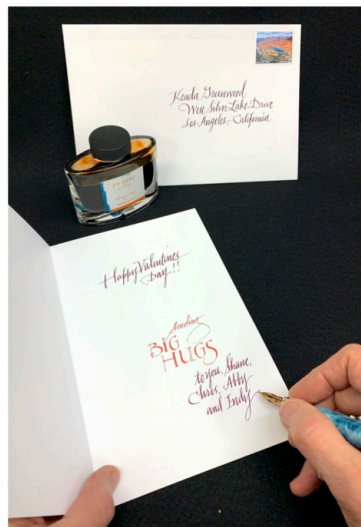 Kenda Greenwood
West Silver Lake Drive
Los Angeles, California
Happy Valentines
Day!!
Sending
BIG
HUGS
to you, Shane,
Chris, Abby
and Indy